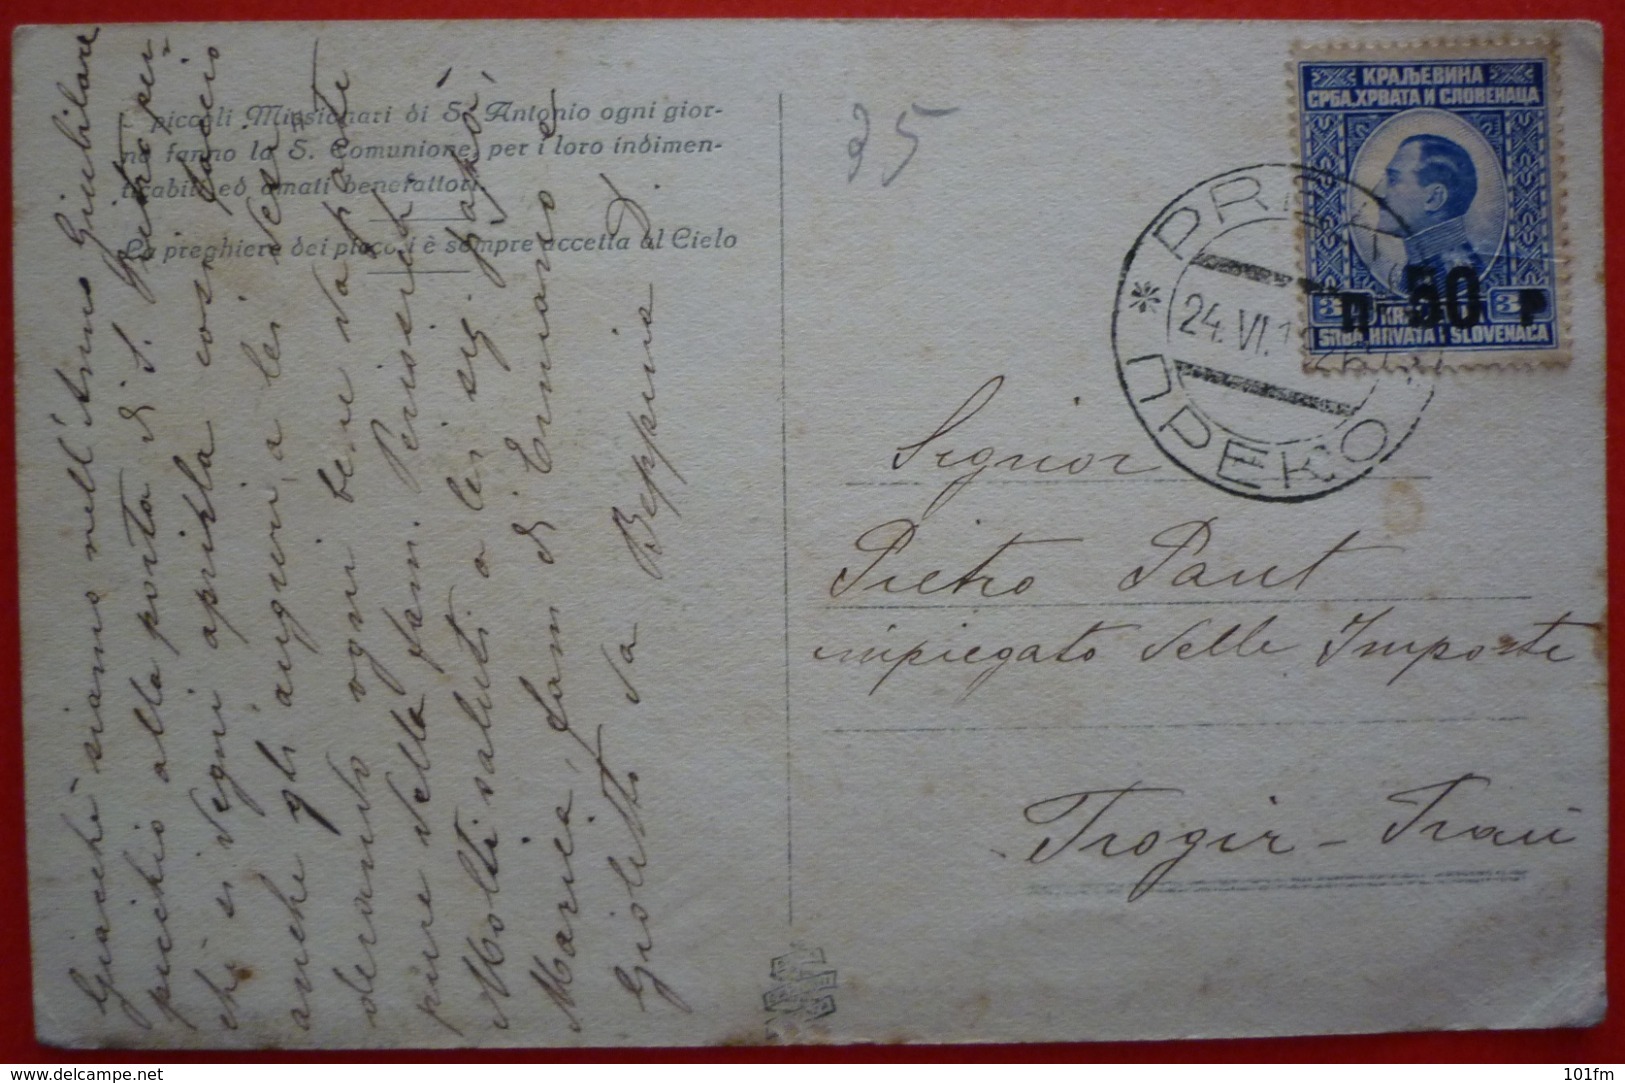 I piccoli Missionari di S. Antonio ogni gior-
no fanno la S. Comunione, per i loro indimen-
ticabili ed amati benefattori.
La preghiera dei piccoli è sempre accetta al Cielo
Giacchè siamo nell'Anno Giubilare
picchio alla porta di S. Pietro per-
chè si degni aprirla così faccio
anche gli auguri a lei
derando ogni bene da parte
pure della fam. Perissich
Molti saluti a lei sig.
Maria, fam di Ermanno e
Gioletto da Beppina
35
КРАЉЕВИНА
СРБА, ХРВАТА И СЛОВЕНАЦА
3 3
П 50 Р
KRALJEVINA
SRBA, HRVATA I SLOVENACA
PREKO
24. VI. 1926
ПРЕКО
Signor
Pietro Paut
impiegato delle Imposte
Trogir - Traù
delcampe.net
101fm